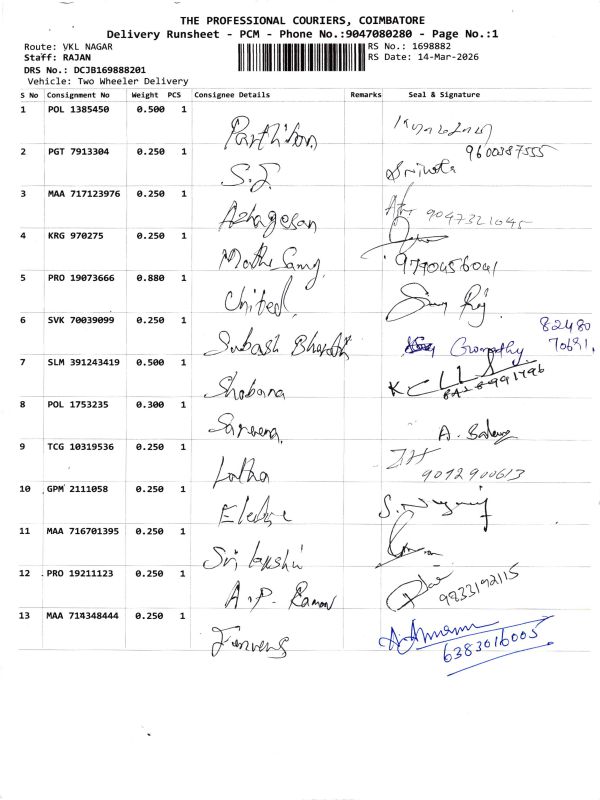 THE PROFESSIONAL COURIERS, COIMBATORE
Delivery Runsheet - PCM - Phone No.:9047080280 - Page No.:1
Route: VKL NAGAR
RS No.: 1698882
Staff: RAJAN
RS Date: 14-Mar-2026
DRS No.: DCJB169888201
Vehicle: Two Wheeler Delivery
S No Consignment No Weight PCS Consignee Details Remarks Seal & Signature
1 POL 1385450 0.500 1
Parthiban
2 PGT 7913304 0.250 1 9600387555
S.J.
3 MAA 717123976 0.250 1
Azhagesan 9047321045
4 KRG 970275 0.250 1
Mathe Samy 9790456041
5 PRO 19073666 0.880 1
United
6 SVK 70039099 0.250 1 82480
Subash Bharath Gomathy 70681.
7 SLM 391243419 0.500 1
Shobana
8 POL 1753235 0.300 1
A.
9 TCG 10319536 0.250 1
Latha 9092900613
10 GPM 2111058 0.250 1
S.
11 MAA 716701395 0.250 1
Sri lakshi
12 PRO 19211123 1 0.250
A.P. Raman
13 MAA 714348444 0.250 1
6383016005